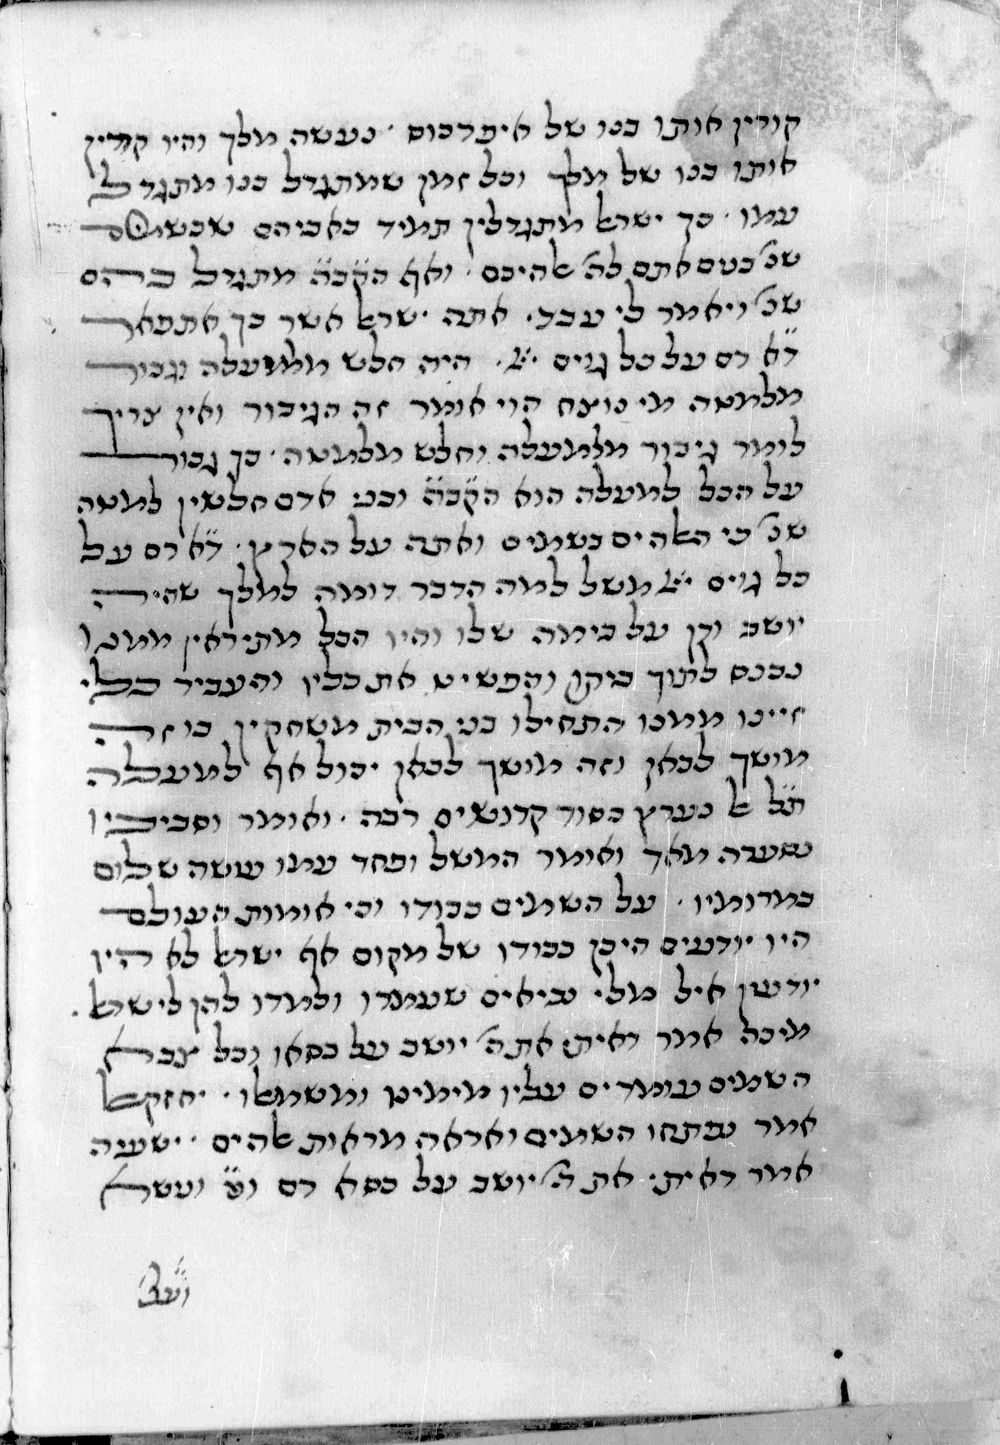 קורין אותו בנו של איפרכוס · נעשה מלך והיו קורין
אותו בנו של מלך וכל זמן שמתגדל בנו מתגדל
עמו · כך ישראל מתגדלין תמיד באביהם שבשמים
שנ׳ בנים אתם לה׳ אלהיכם · ואף הק̈ב̈ה̈ מתגדל בהם
שנ׳ ויאמר לי עבדי אתה ישראל אשר בך אתפאר
ד״א רם על כל גוים יי׳ · היה חלש מלמעלה וגבור
מלמטה מי נוצח הוי אומר זה הגיבור ואין צריך
לומר גיבור מלמעלה וחלש מלמטה · כך גבור
על הכל למעלה הוא הק̈ב̈ה̈ ובני אדם חלשין למטה
שנ׳ כי האלהים בשמים ואתה על הארץ · ד״א רם על
כל גוים יי׳ משל למה הדבר דומה למלך שהיה
יושב ודן על בימה שלו והיו הכל מתיראין ממנו
נכנס לתוך ביתו והפשיט את כליו והעביר כלי
זיינו ממנו התחילו בני הבית משחקין בו זה
מושך לכאן וזה מושך לכאן יכול אף למעלה
ת״ל אל נערץ בסוד קדושים רבה · ואומר וסביביו
נשערה מאד ואומר המשל ופחד עמו עושה שלום
במרומיו · על השמים כבודו וכי אומות העולם
היו יודעים היכן כבודו של מקום אף ישראל לא היו
יודעין אילולי נביאים שעמדו ולמדו להן לישראל ·
מיכה אמר ראיתי את ה׳ יושב על כסאו וכל צבא
השמים עומדים עליו מימינו ומשמאלו · יחזקאל
אמר נפתחו השמים ואראה מראות אלהים · ישעיה
אמר ראיתי את ה׳ יושב על כסא רם ונ״ ונשא